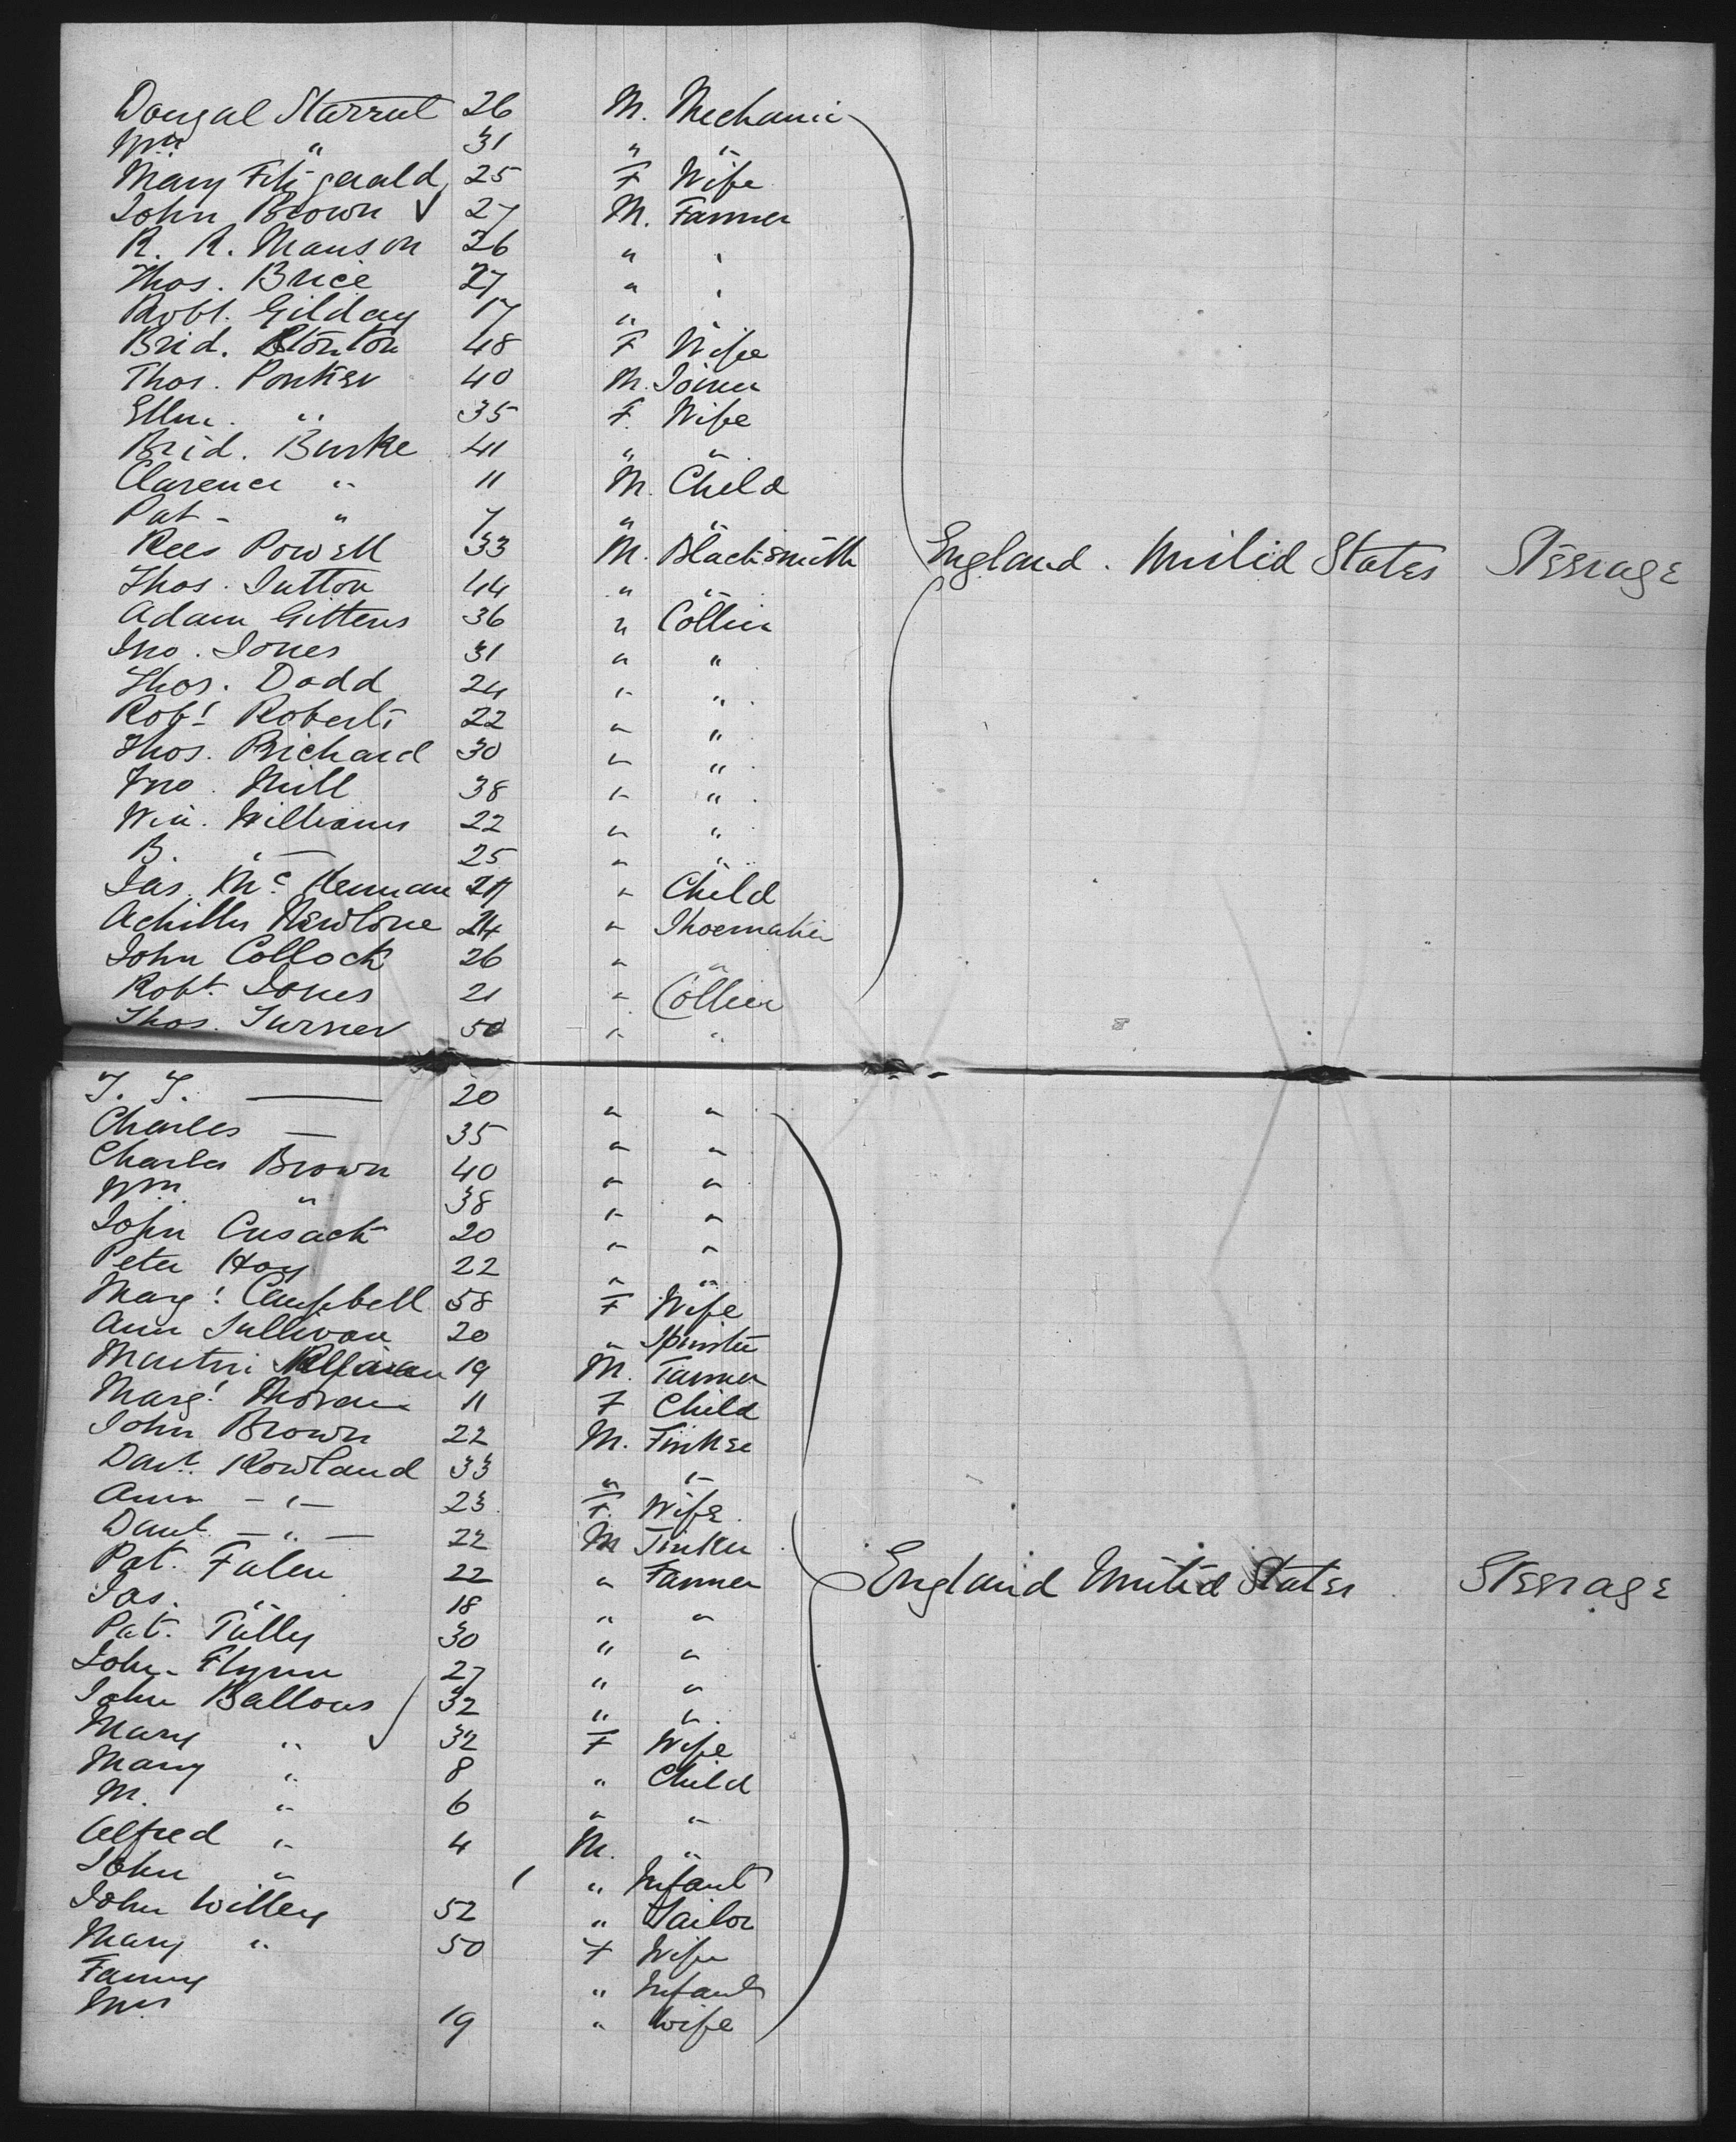 Dougal Starrut 26 M. Mechanic
Wm " 31 " "
Mary Fitzgerald 25 F Wife
John Brown √ 27 M. Farmer
R. R. Manson 26 " "
Thos. Brice 27 " "
Robt. Gilday 17 "
Brid. Stonton 48 F Wife
Thos. Ponker 40 M. Joiner
Ellen " 35 F. Wife
Brid. Burke 41 " "
Clarence " 11 M. Child
Pat - " 7 " "
Rees Powell 33 M. Blacksmith England. United States Steerage
Thos. Sutton 44 " "
Adam Gittens 36 " Collier
Jno. Jones 31 " "
Thos. Dodd 24 " "
Robt Roberts 22 " "
Thos. Prichard 30 " "
Jno. Hill 38 " "
Wm. Williams 22 " "
B. " 25 " "
Jas. Mc " Child
Achilles Newlove 24 " Shoemaker
John Collock 26 " "
Robt Jones 21 " Collier
Thos. Turner 50 " "
T. T. — 20 " "
Charles — 35 " "
Charles Brown 40 " "
Wm. " 38 " "
John Cusack 20 " "
Peter Hoy 22 " "
Margt Campbell 58 F Wife
Ann Sullivan 20 " Spinster
Martin 19 M. Farmer
Margt Moran 11 F Child
John Brown 22 M. Tinker
Danl. Rowland 33 " "
Ann - " - 23 F. Wife
Danl - " - 22 M Tinker
Pat. Falen 22 " Farmer England United States Steerage
Jas. " 18 " "
Pat. Tully 30 " "
John Flynn 27 " "
John Ballous 32 " "
Mary " 32 F Wife
Mary " 8 " Child
M. " 6 " "
Alfred " 4 M. "
John " 1 " Infant
John Willey 52 " Sailor
Mary " 50 F Wife
Fanny " Infant
Mrs 19 " Wife